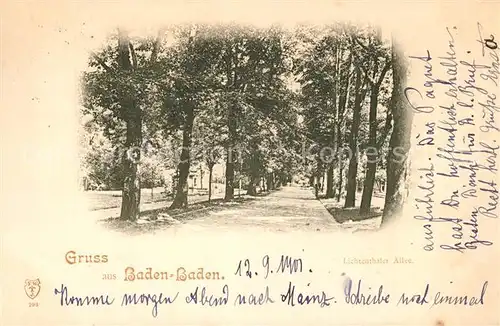 Gruss
aus Baden-Baden.
Lichtenthaler Allee.
12. 9. 1901.
Komme morgen Abend nach Mainz. Schreibe noch einmal
ausführlich. Das Paquet
hast Du hoffentlich erhalten.
Besten Dank für D. l. Brief.
Recht herzl. Grüße